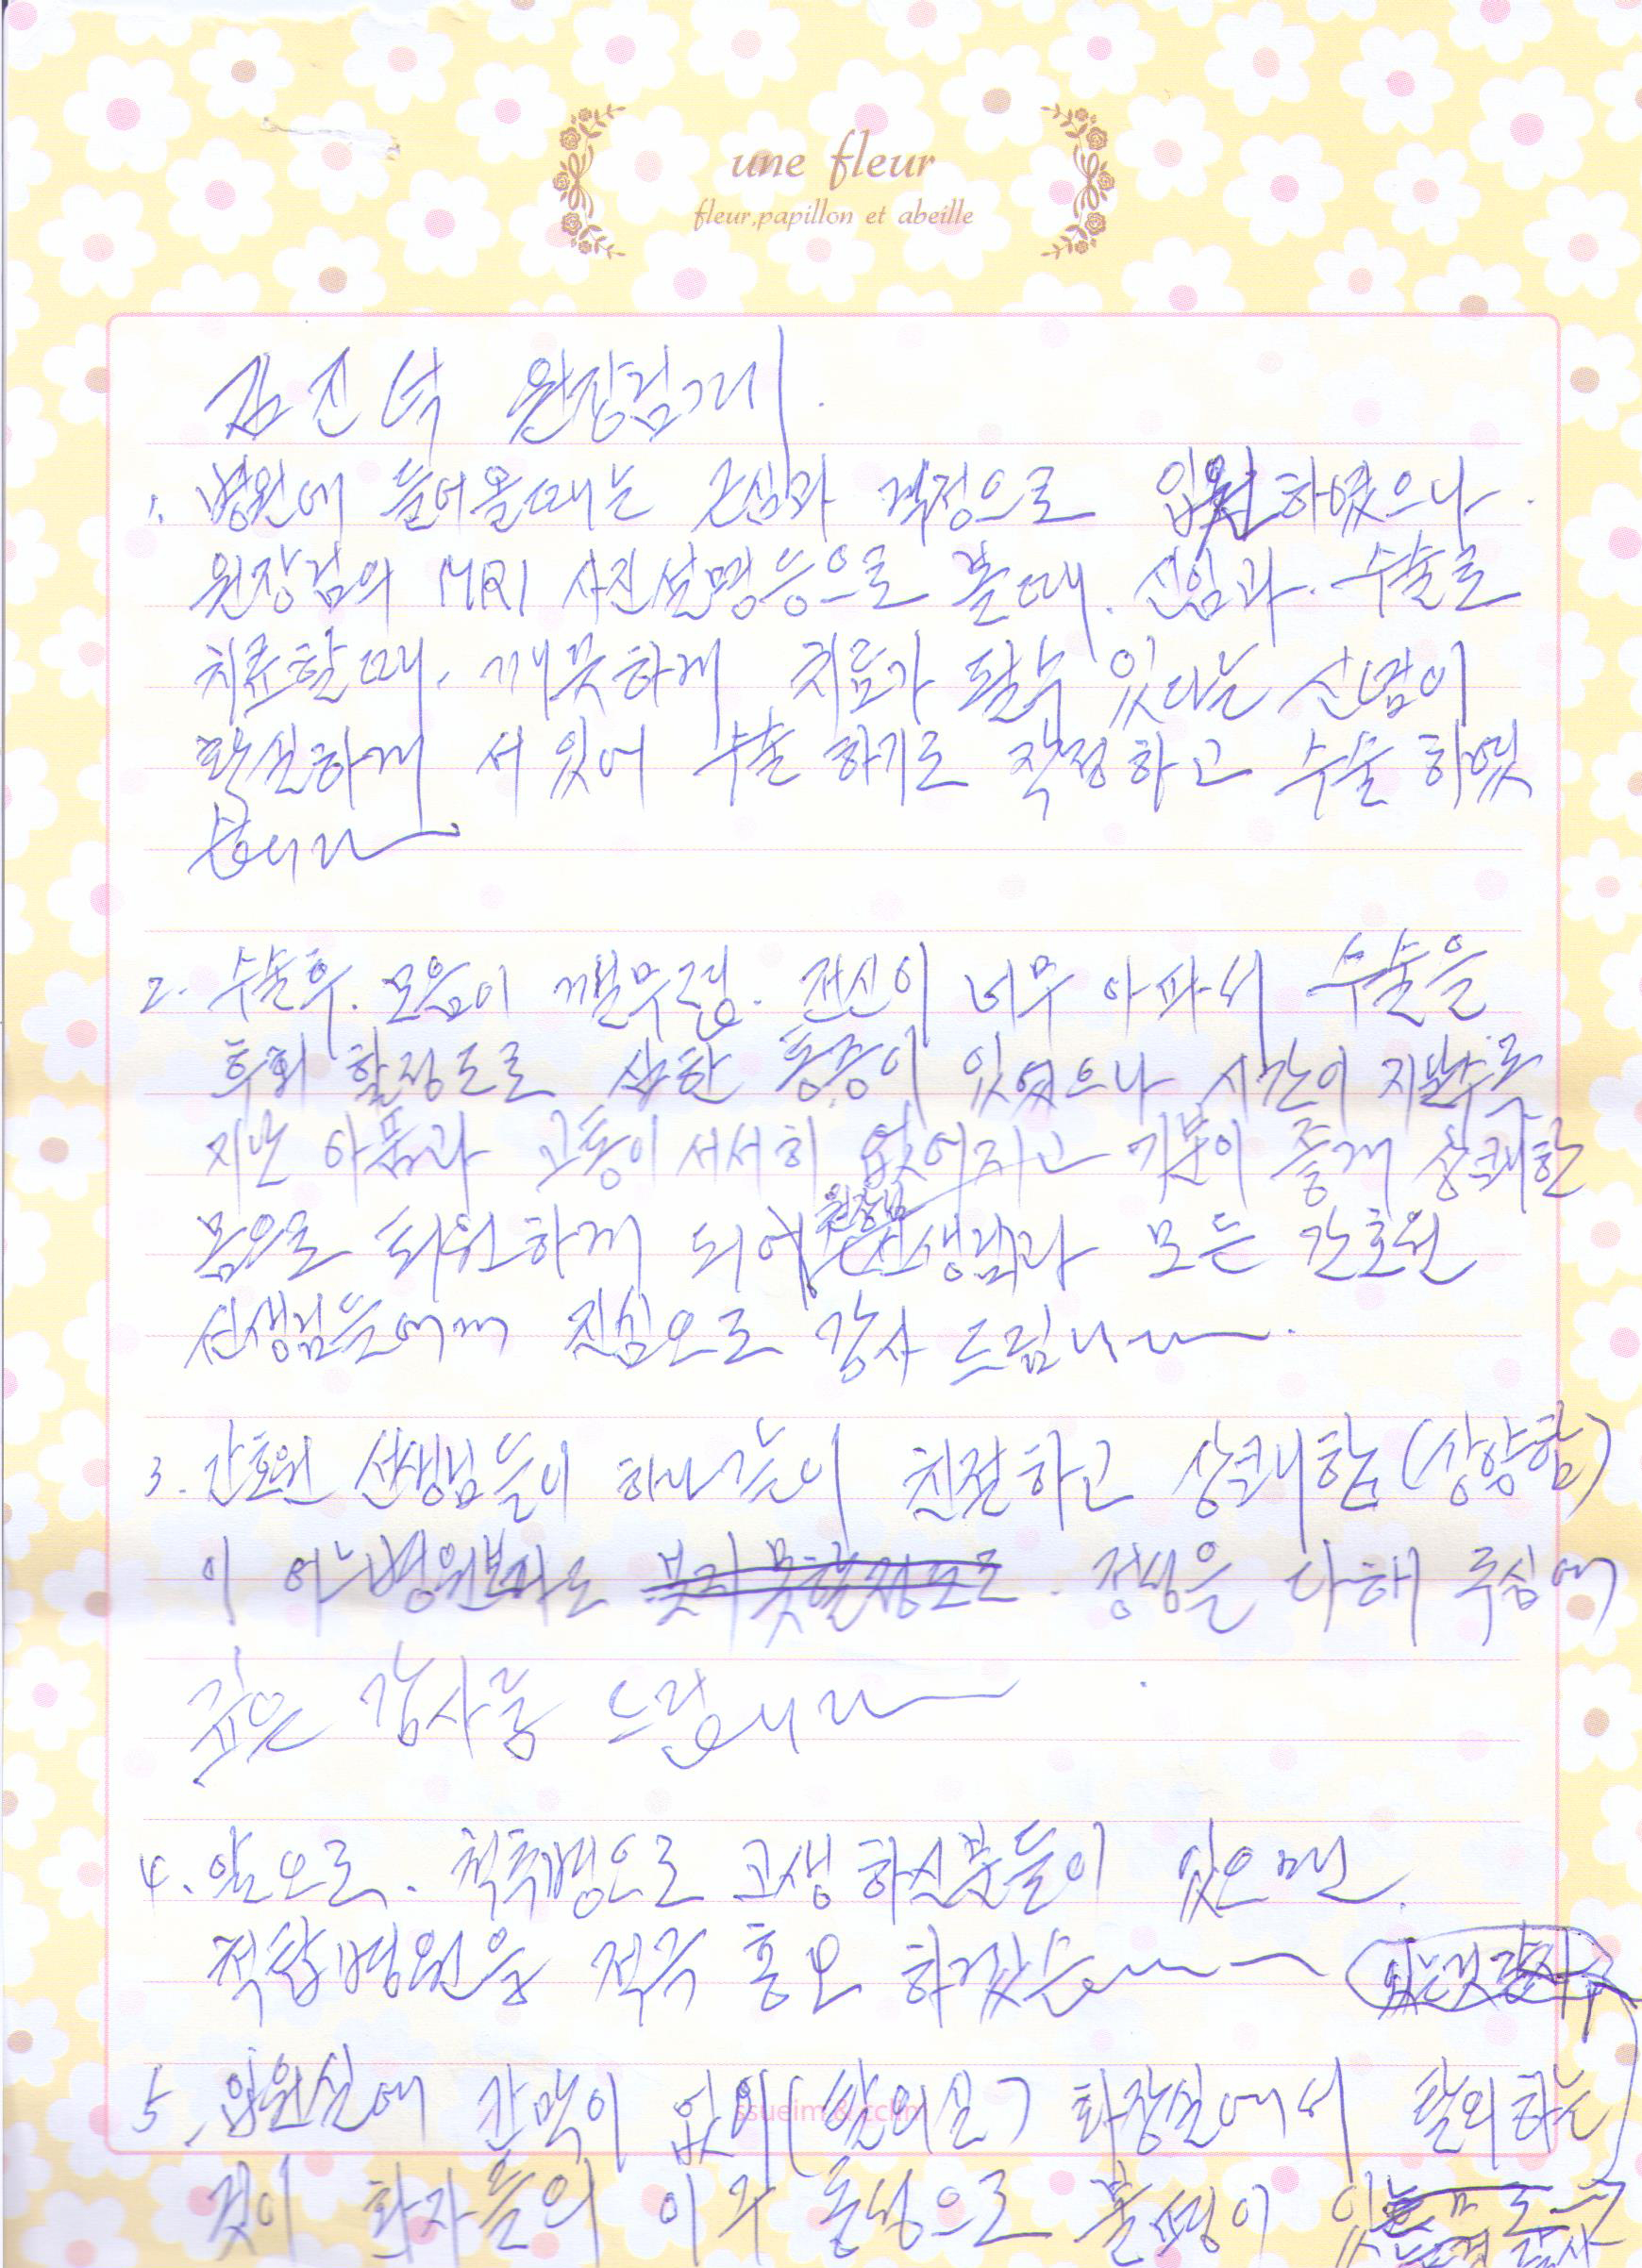 une fleur
fleur, papillon et abeille
김진 원장님께.
1. 병원에 들어올때는 근심과 걱정으로 입원하였으나.
원장님의 MRI 사진설명등으로 볼때. 신임과. 수술로
치료할때. 깨끗하게 치료가 될수 있다는 신념이
확실하게 서 있어 수술 하기로 작정하고 수술 하였
습니다.
2. 수술후. 모음이 전신이 너무 아파서 수술을
후회 할정도로 심한 통증이 있었으나 시간이 지날수록
지난 아픔과 고통이 서서히 없어지고 기분이 좋게 상쾌한
몸으로 퇴원하게 되어 원장님 선생님과 모든 간호원
선생님들에게 진심으로 감사 드립니다.
3. 간호원 선생님들이 하나같이 친절하고 상쾌함(상냥함)
이 어느병원보다도 정성을 다해 주심에
깊은 감사를 드립니다.
4. 앞으로. 척추병으로 고생 하신분들이 있으면.
병원을 적극 홍보 하겠습
5. 입원실에 칸막이 없이(탈의실) 화장실에서 탈의하는
것이 환자들의 불평이
ssueim & cclim